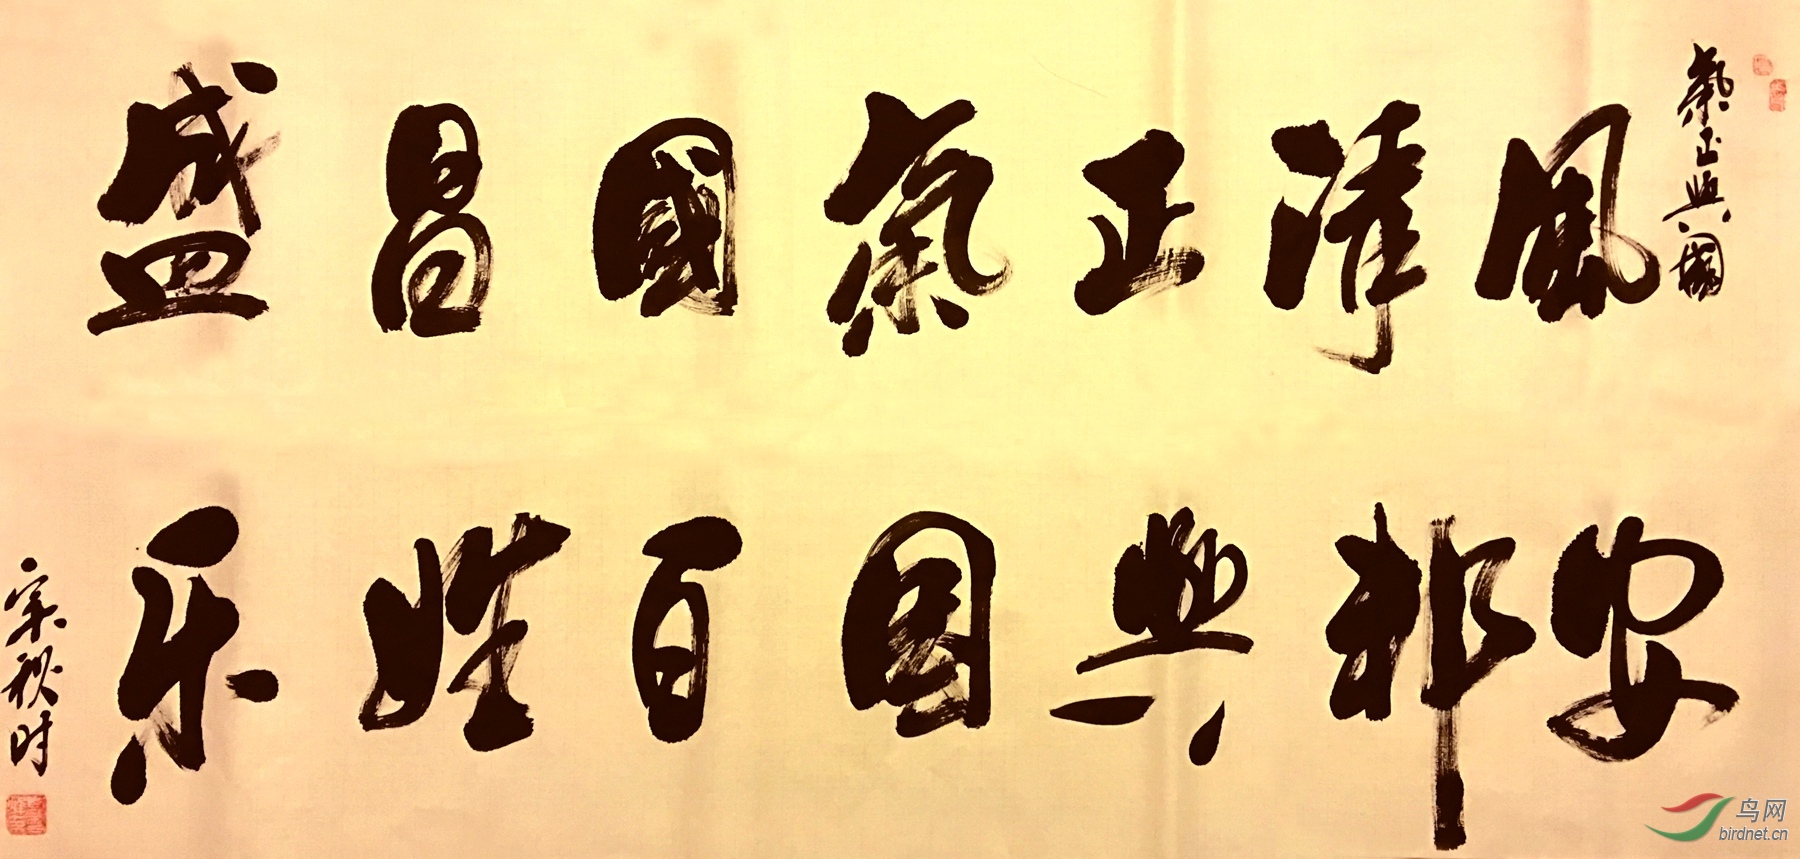 氣正興國
風清正氣國昌盛
安邦興國百姓乐
宗秋时
鸟网
birdnet.cn